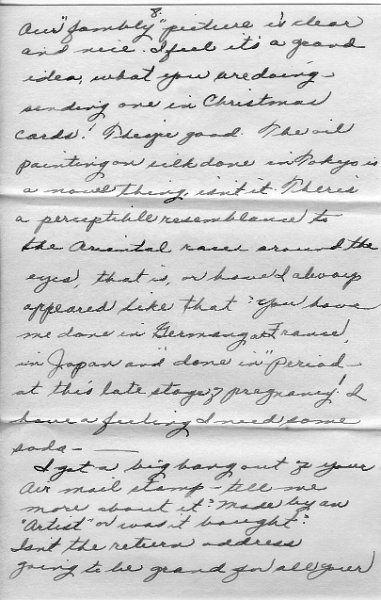 8.
Our "fambly" picture is clear
and nice. I feel it's a grand
idea, what you are doing -
sending one in Christmas
cards! They're good. The oil
painting on silk done in Tokyo is
a novel thing, isn't it. There's
a perceptible resemblance to
the Oriental races around the
eyes, that is, or have I always
appeared like that? You have
me done in Germany & France,
in Japan and "done in" period -
at this late stage of pregnancy! I
have a feeling I need some
soda -
I got a big bang out of your
air mail stamp - tell me
more about it? Made by an
"Artist" or was it bought?
Isn't the return address
going to be grand for all your